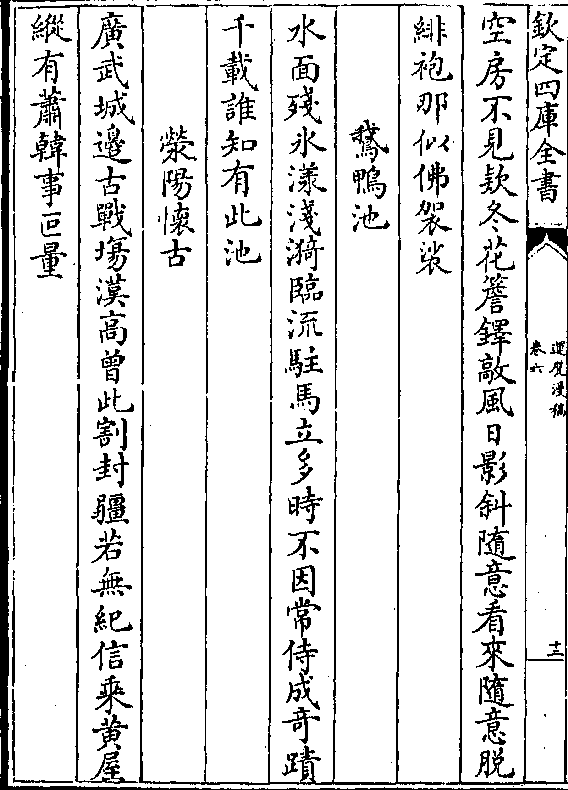 欽定四庫全書
運甓漫稿
卷六
十三
空房不見欵冬花簷鐸敲風日影斜隨意看來隨意脫
緋袍那似佛袈裟
鵞鴨池
水面殘氷漾淺漪臨流駐馬立多時不因常侍成奇蹟
千載誰知有此池
滎陽懷古
廣武城邊古戰塲漢高曾此割封疆若無紀信乘黃屋
縱有蕭韓事叵量